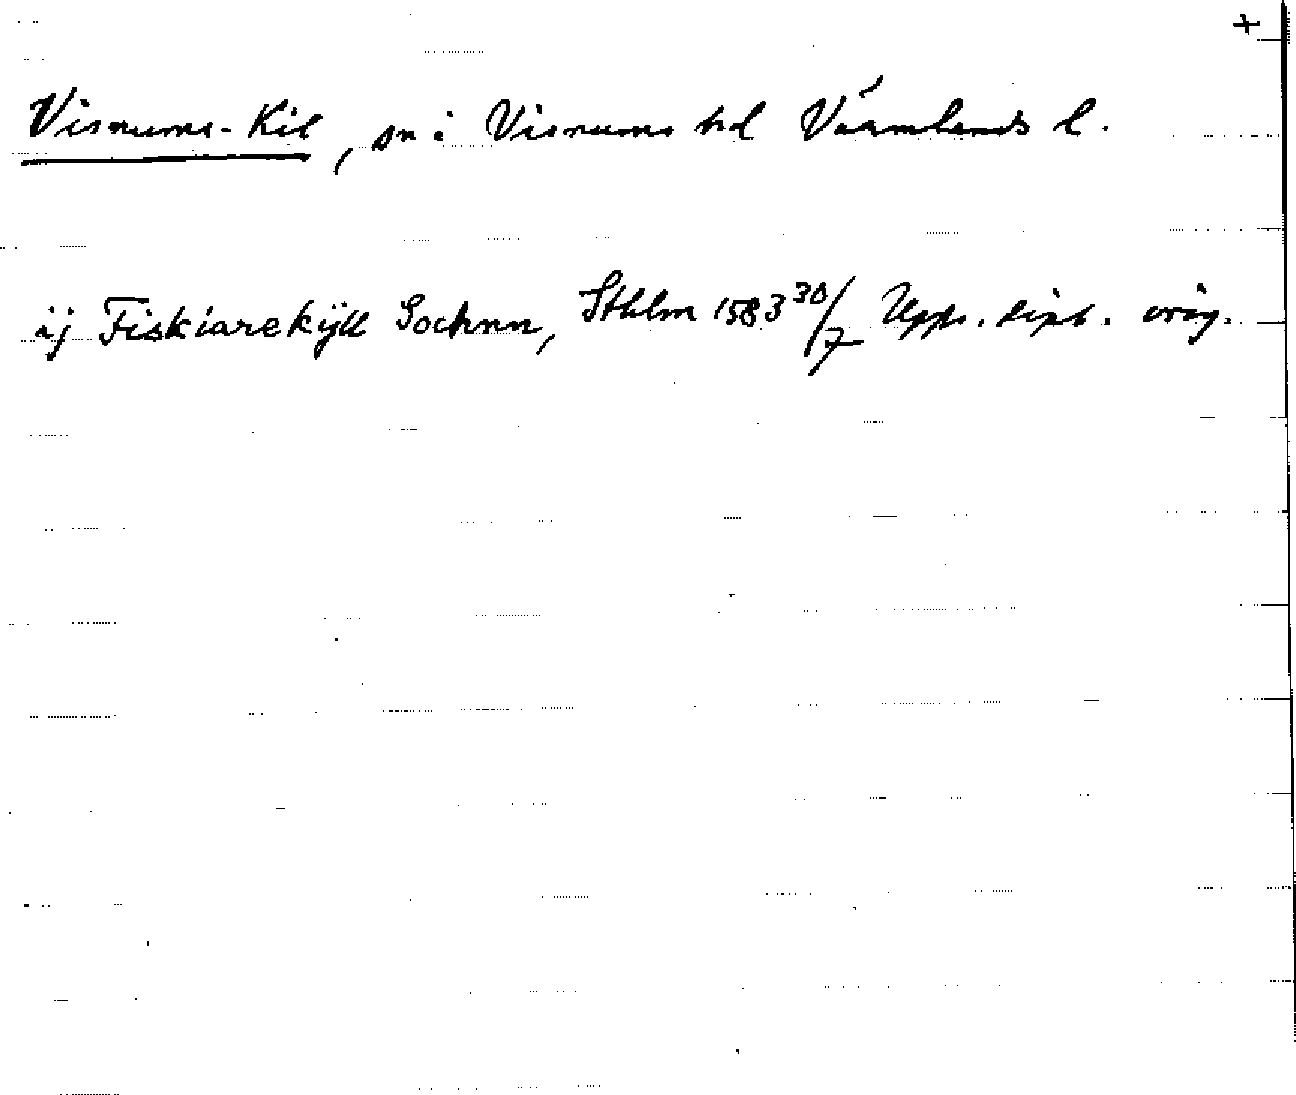 +
Visnums-Kil, sn i Visnums hd Värmlands l.
ij Fiskiarekÿll Sochnn, Sthlm 1583 30/7 Upps. dipl. orig.